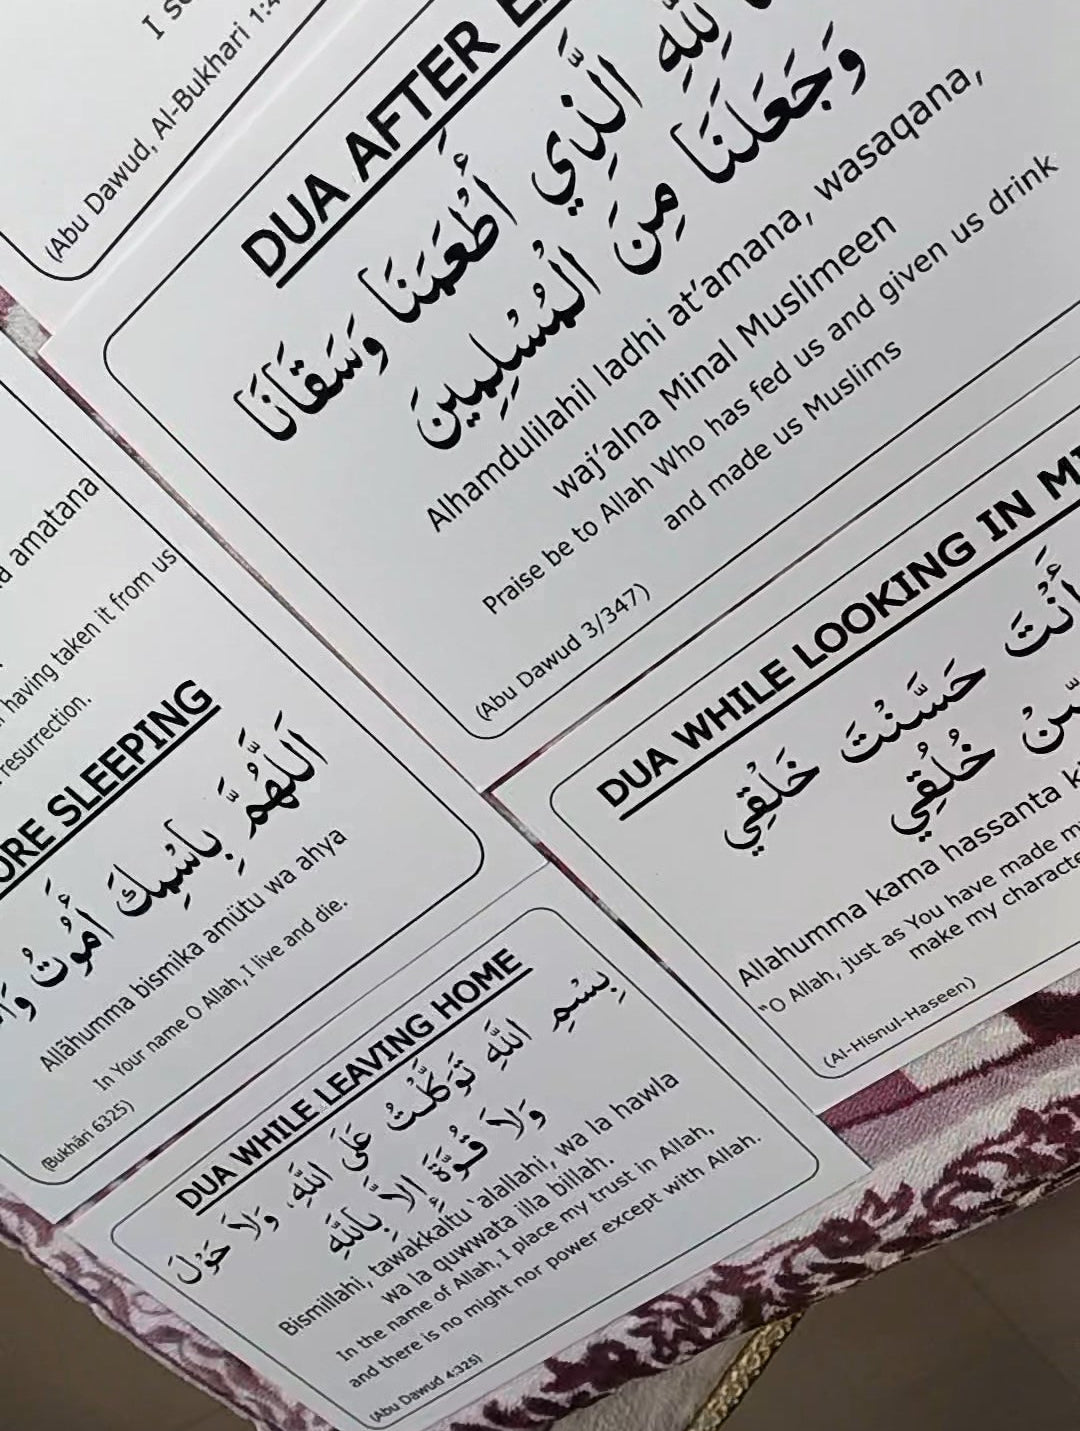 I
(Abu Dawud, Al-Bukhari 1:4
DUA AFTER
لِلَّهِ الَّذِي أَطْعَمَنَا وَسَقَانَا
وَجَعَلَنَا مِنَ الْمُسْلِمِينَ
Alhamdulilahil ladhi at’amana, wasaqana,
waj’alna Minal Muslimeen
Praise be to Allah Who has fed us and given us drink
and made us Muslims
(Abu Dawud 3/347)
amatana
having taken it from us
resurrection.
ORE SLEEPING
اَللَّهُمَّ بِاسْمِكَ أَمُوتُ
Allãhumma bismika amütu wa ahya
In Your name O Allah, I live and die.
(Bukhãri 6325)
DUA WHILE LOOKING IN MI
أَنْتَ حَسَّنْتَ خَلْقِي
خُلُقِي
Allahumma kama hassanta k
“O Allah, just as You have made m
make my characte
(Al-Hisnul-Haseen)
DUA WHILE LEAVING HOME
بِسْمِ اللَّهِ تَوَكَّلْتُ عَلَى اللَّهِ، وَلَا حَوْلَ
وَلَا قُوَّةَ إِلاَّ بِاللَّهِ
Bismillahi, tawakkaltu ‘alallahi, wa la hawla
wa la quwwata illa billah.
In the name of Allah, I place my trust in Allah,
and there is no might nor power except with Allah.
(Abu Dawud 4:325)